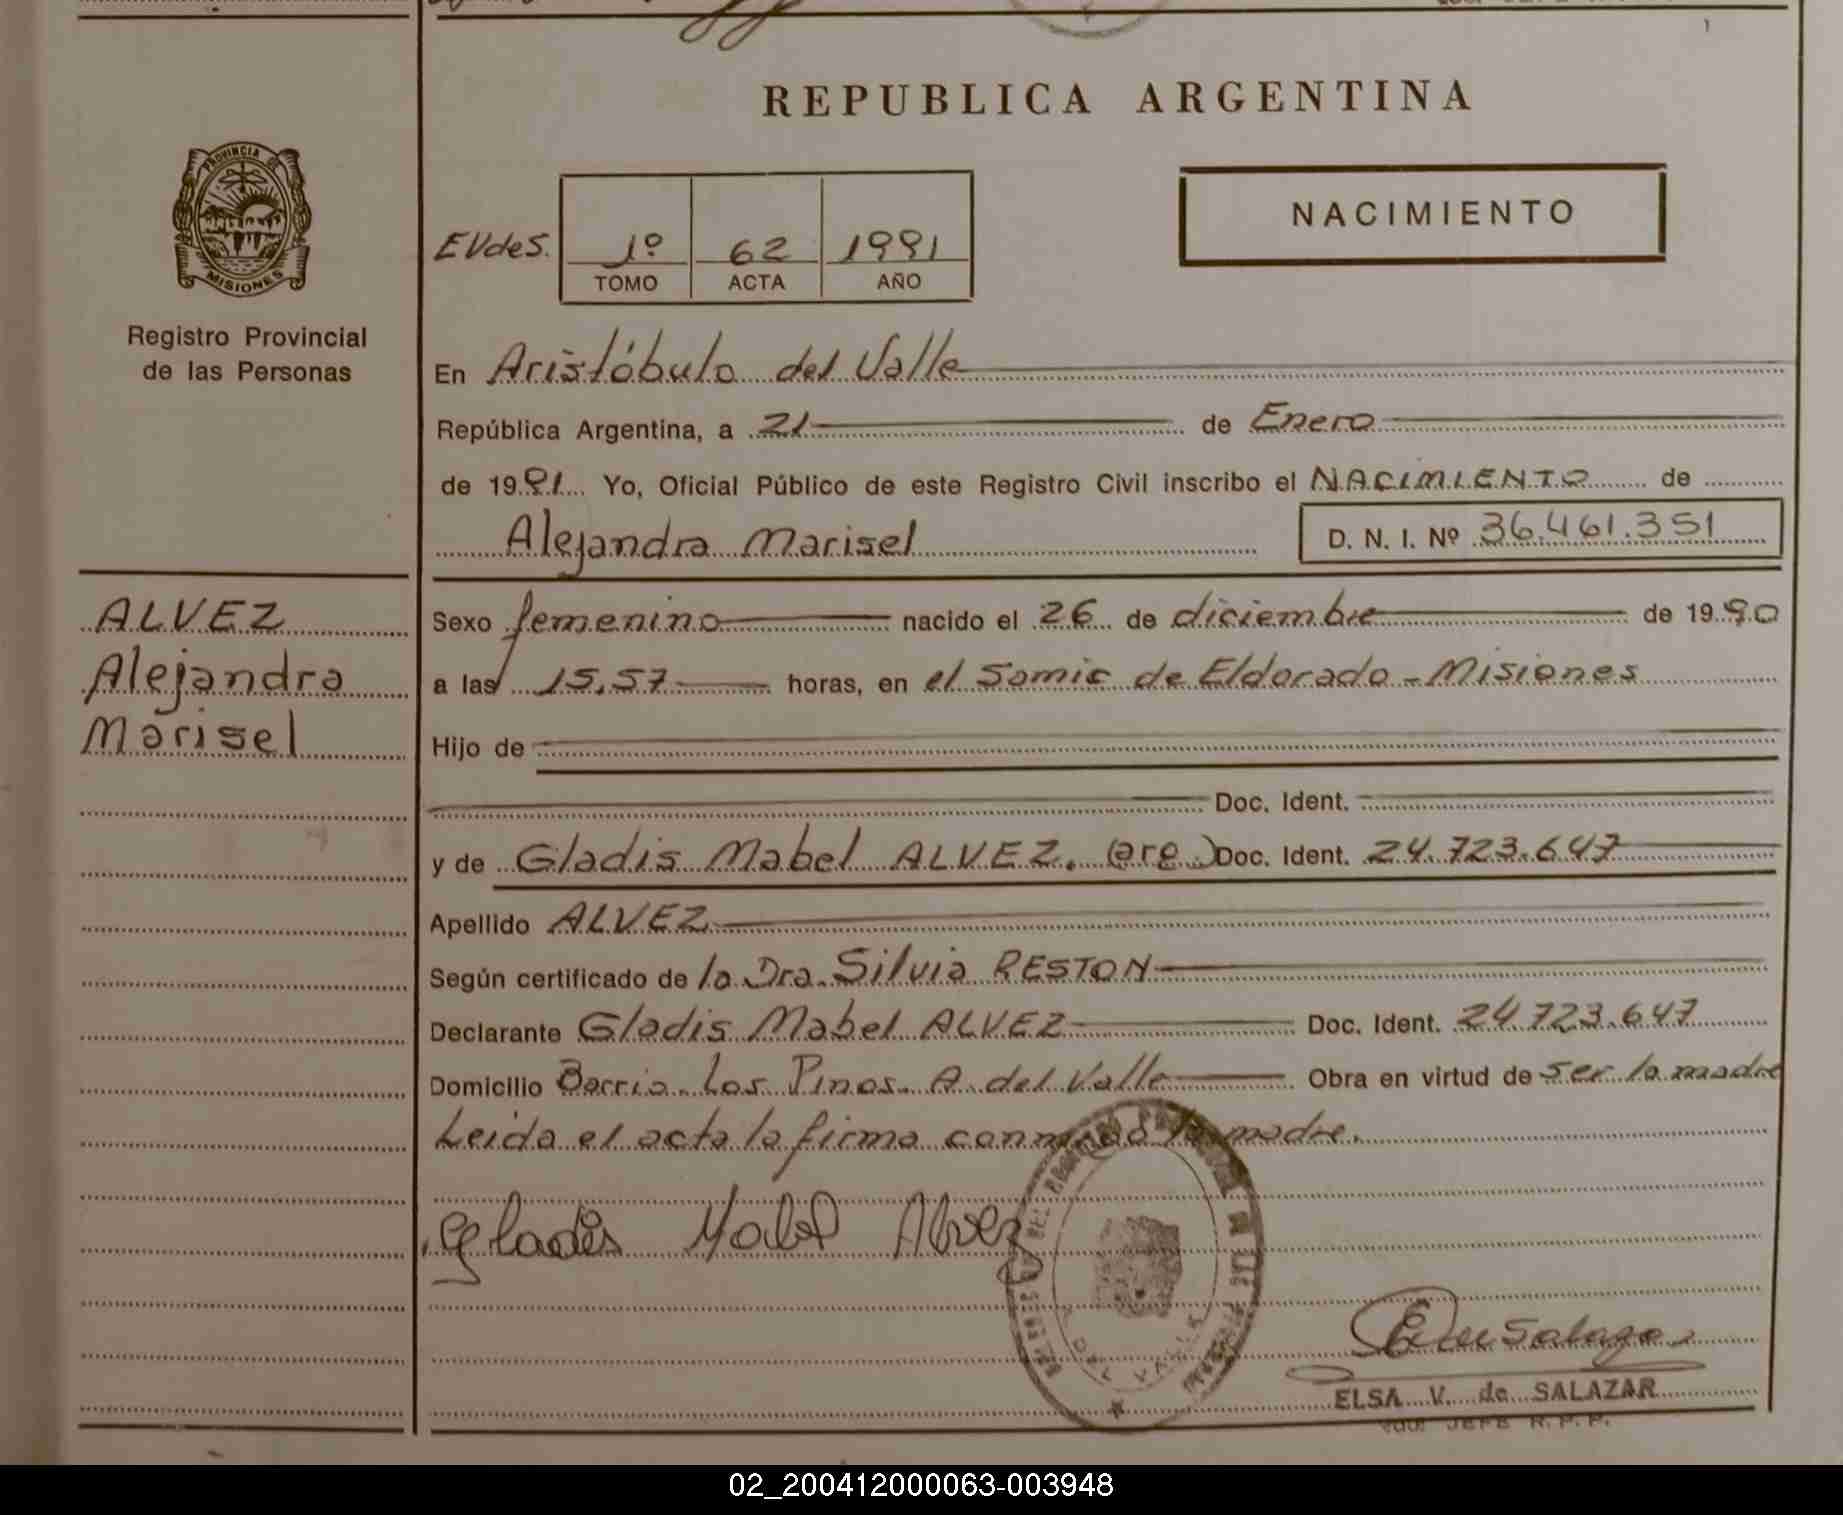 REPUBLICA ARGENTINA
NACIMIENTO
PROVINCIA DE
MISIONES
Registro Provincial
de las Personas
EVdeS.
1º 62 1991
TOMO ACTA AÑO
En Aristóbulo del Valle
República Argentina, a 21 de Enero
de 1991 Yo, Oficial Público de este Registro Civil inscribo el NACIMIENTO de
Alejandra Marisel D. N. I. Nº 36.461.351
ALVEZ
Alejandra
Marisel
Sexo femenino nacido el 26 de diciembre de 1990
a las 15,57 horas, en el Samic de Eldorado - Misiones
Hijo de
Doc. Ident.
y de Gladis Mabel ALVEZ. (arg.) Doc. Ident. 24.723.647
Apellido ALVEZ
Según certificado de la Dra. Silvia RESTON
Declarante Gladis Mabel ALVEZ Doc. Ident. 24.723.647
Domicilio Barrio Los Pinos. A. del Valle Obra en virtud de ser la madre
Leida el acta la firma conmigo la madre.
Gladis Mabel Alvez
DEL VALLE
ELSA V. de SALAZAR
JEFE R.P.P.
02_200412000063-003948